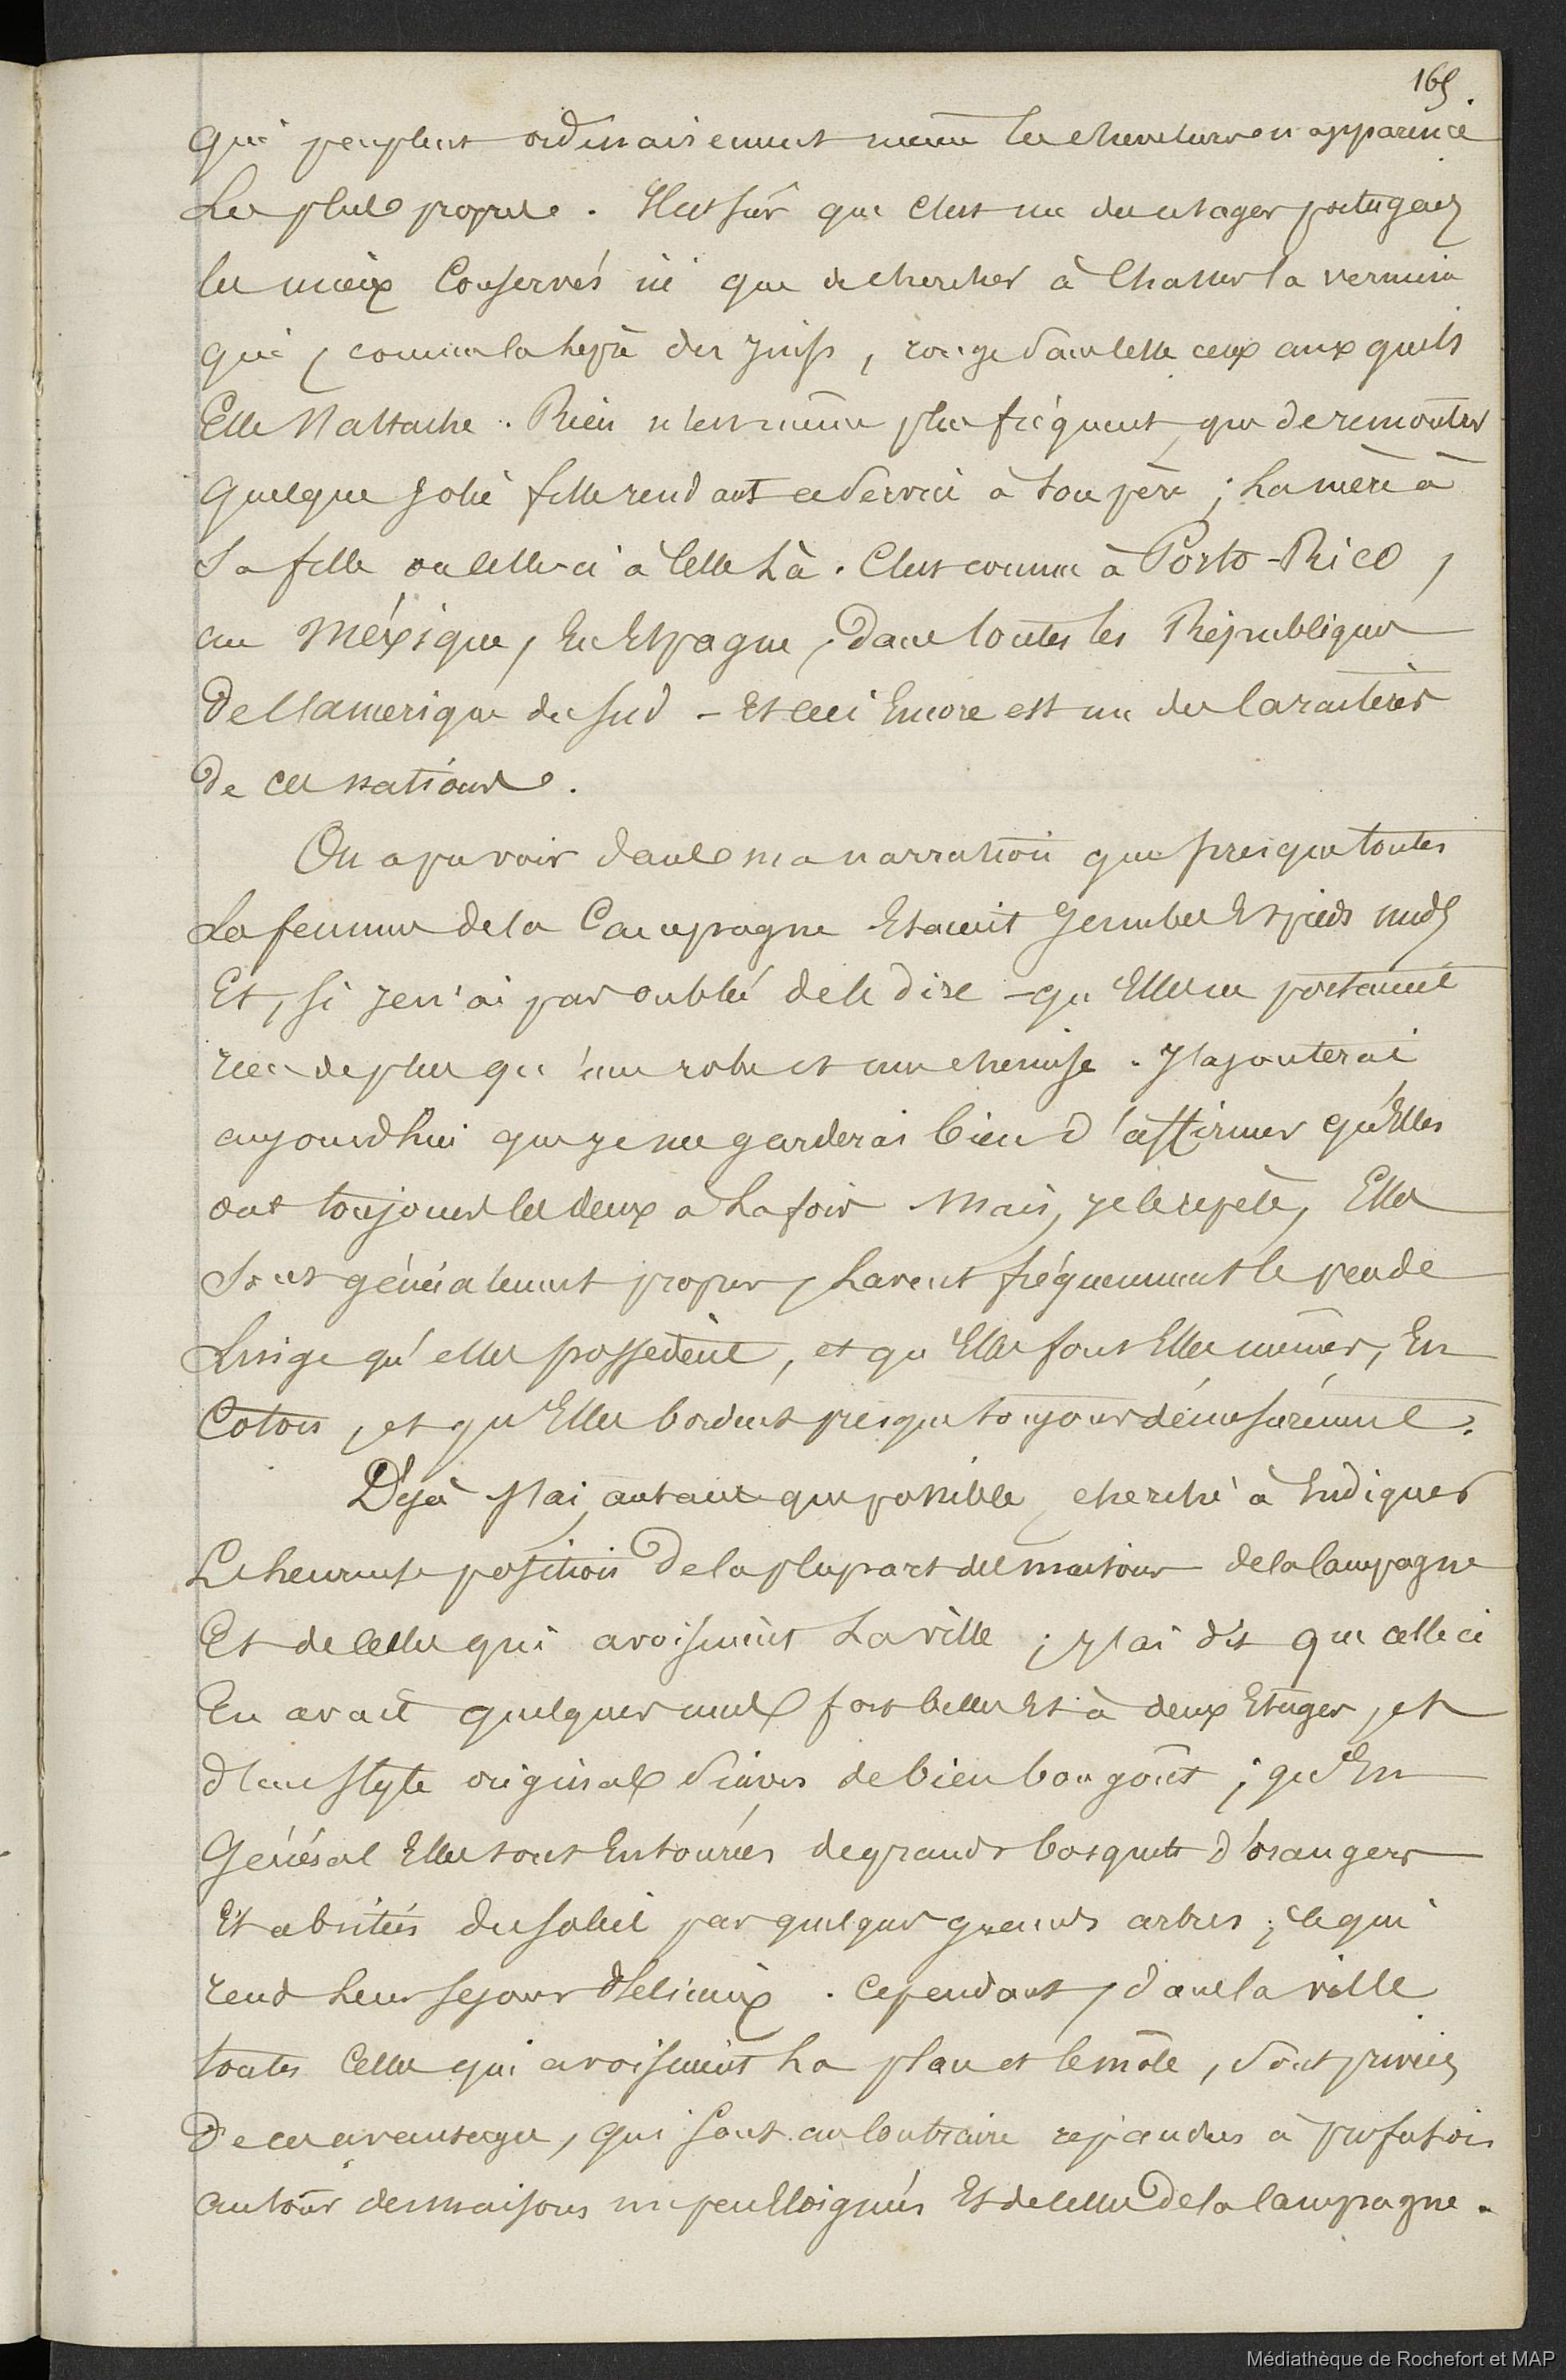 165.
qui peuplent ordinairement même les chevelures en apparence
Les plus propres. Il est sûr que c'est un des usages portugais
les mieux Conservés ici que de chercher à Chasser la vermine
qui, comme la lèpre des juifs, ronge sans cesse ceux aux quels
Elle s'attache. Rien n'est même plus fréquent, que de remontrer
quelque jolie fille rendant ce service à son père; La mère à
Sa fille ou celle-ci à celle Là. C'est comme à Porto-Rico,
au Méxique, En Espagne, Dans toutes les Républiques
De l'amerique du sud - Et ceci Encore est un des Caractères
De ces nations.
On a pu voir dans ma narration que presque toutes
Les femmes de la Campagne Etaient Jambes Et pieds nuds
Et, si je n'ai pas oublié de le dire - qu'Elles ne portaient
rien de plus qu'une robe et une chemise. J'ajouterai
aujourdhui que je me garderai bien d'affirmer qu'Elles
ont toujours les deux a La fois. Mais, je le repète, Elles
Sont généralement propres, Lavent fréquemment le peu de
Linge qu'elles possedent, et qu'Elles font Elles mêmes, En
Coton, et qu'Elles bordent presque toujours démesurément.
Déjà j'ai, autant que possible, cherché à Indiquer
L'heureuse position De la plupart des maisons de la Campagne
Et de celles qui avoisinent La ville; j'ai dit que celle ci
En avait quelques unes fort belles Et à deux Etages, et
d'un style original sinon de bien bon goût; qu'En
Général Elles sont Entourées de grands bosquets d'orangers
Et abritées du soleil par quelques grands arbres; ce qui
rend Leur sejour délicieux. Cependant, dans la ville
toutes Celles qui avoisinent La place et le môle, sont privées
De ces avantages, qui sont au Contraire répandus à profusion
autour des maisons un peu Eloignées Et de celles De la Campagne.
Médiathèque de Rochefort et MAP